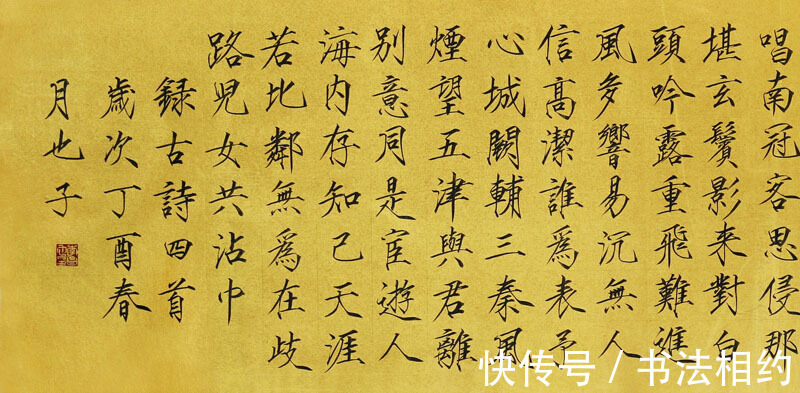 唱南冠客思侵那
堪玄鬢影来對白
頭吟露重飛難進
風多響易沉無人
信高潔誰為表予
心城闕輔三秦風
煙望五津與君離
别意同是宦遊人
海内存知己天涯
若比鄰無為在歧
路児女共沾巾
録古詩四首
歲次丁酉春
月也子
快传号 / 书法相约